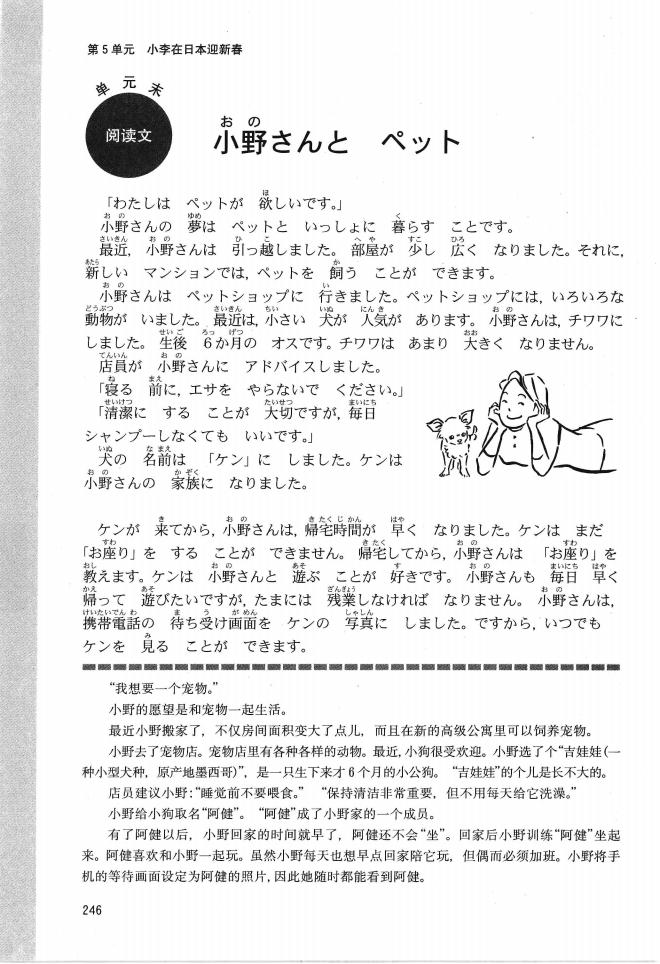 第5单元　小李在日本迎新春
单元末
阅读文
小野さんと　ペット
「わたしは　ペットが　欲しいです。」
小野さんの　夢は　ペットと　いっしょに　暮らす　ことです。
最近，小野さんは　引っ越しました。部屋が　少し　広く　なりました。それに，
新しい　マンションでは，ペットを　飼う　ことが　できます。
小野さんは　ペットショップに　行きました。ペットショップには，いろいろな
動物が　いました。最近は，小さい　犬が　人気が　あります。小野さんは，チワワに
しました。生後　6か月の　オスです。チワワは　あまり　大きく　なりません。
店員が　小野さんに　アドバイスしました。
「寝る　前に，エサを　やらないで　ください。」
「清潔に　する　ことが　大切ですが，毎日
シャンプーしなくても　いいです。」
犬の　名前は　「ケン」に　しました。ケンは
小野さんの　家族に　なりました。
ケンが　来てから，小野さんは，帰宅時間が　早く　なりました。ケンは　まだ
「お座り」を　する　ことが　できません。帰宅してから，小野さんは　「お座り」を
教えます。ケンは　小野さんと　遊ぶ　ことが　好きです。小野さんも　毎日　早く
帰って　遊びたいですが，たまには　残業しなければ　なりません。小野さんは，
携帯電話の　待ち受け画面を　ケンの　写真に　しました。ですから，いつでも
ケンを　見る　ことが　できます。
“我想要一个宠物。”
小野的愿望是和宠物一起生活。
最近小野搬家了，不仅房间面积变大了点儿，而且在新的高级公寓里可以饲养宠物。
小野去了宠物店。宠物店里有各种各样的动物。最近，小狗很受欢迎。小野选了个“吉娃娃(一
种小型犬种，原产地墨西哥)”，是一只生下来才6个月的小公狗。“吉娃娃”的个儿是长不大的。
店员建议小野：“睡觉前不要喂食。”“保持清洁非常重要，但不用每天给它洗澡。”
小野给小狗取名“阿健”。“阿健”成了小野家的一个成员。
有了阿健以后，小野回家的时间就早了，阿健还不会“坐”。回家后小野训练“阿健”坐起
来。阿健喜欢和小野一起玩。虽然小野每天也想早点回家陪它玩，但偶而必须加班。小野将手
机的等待画面设定为阿健的照片，因此她随时都能看到阿健。
246